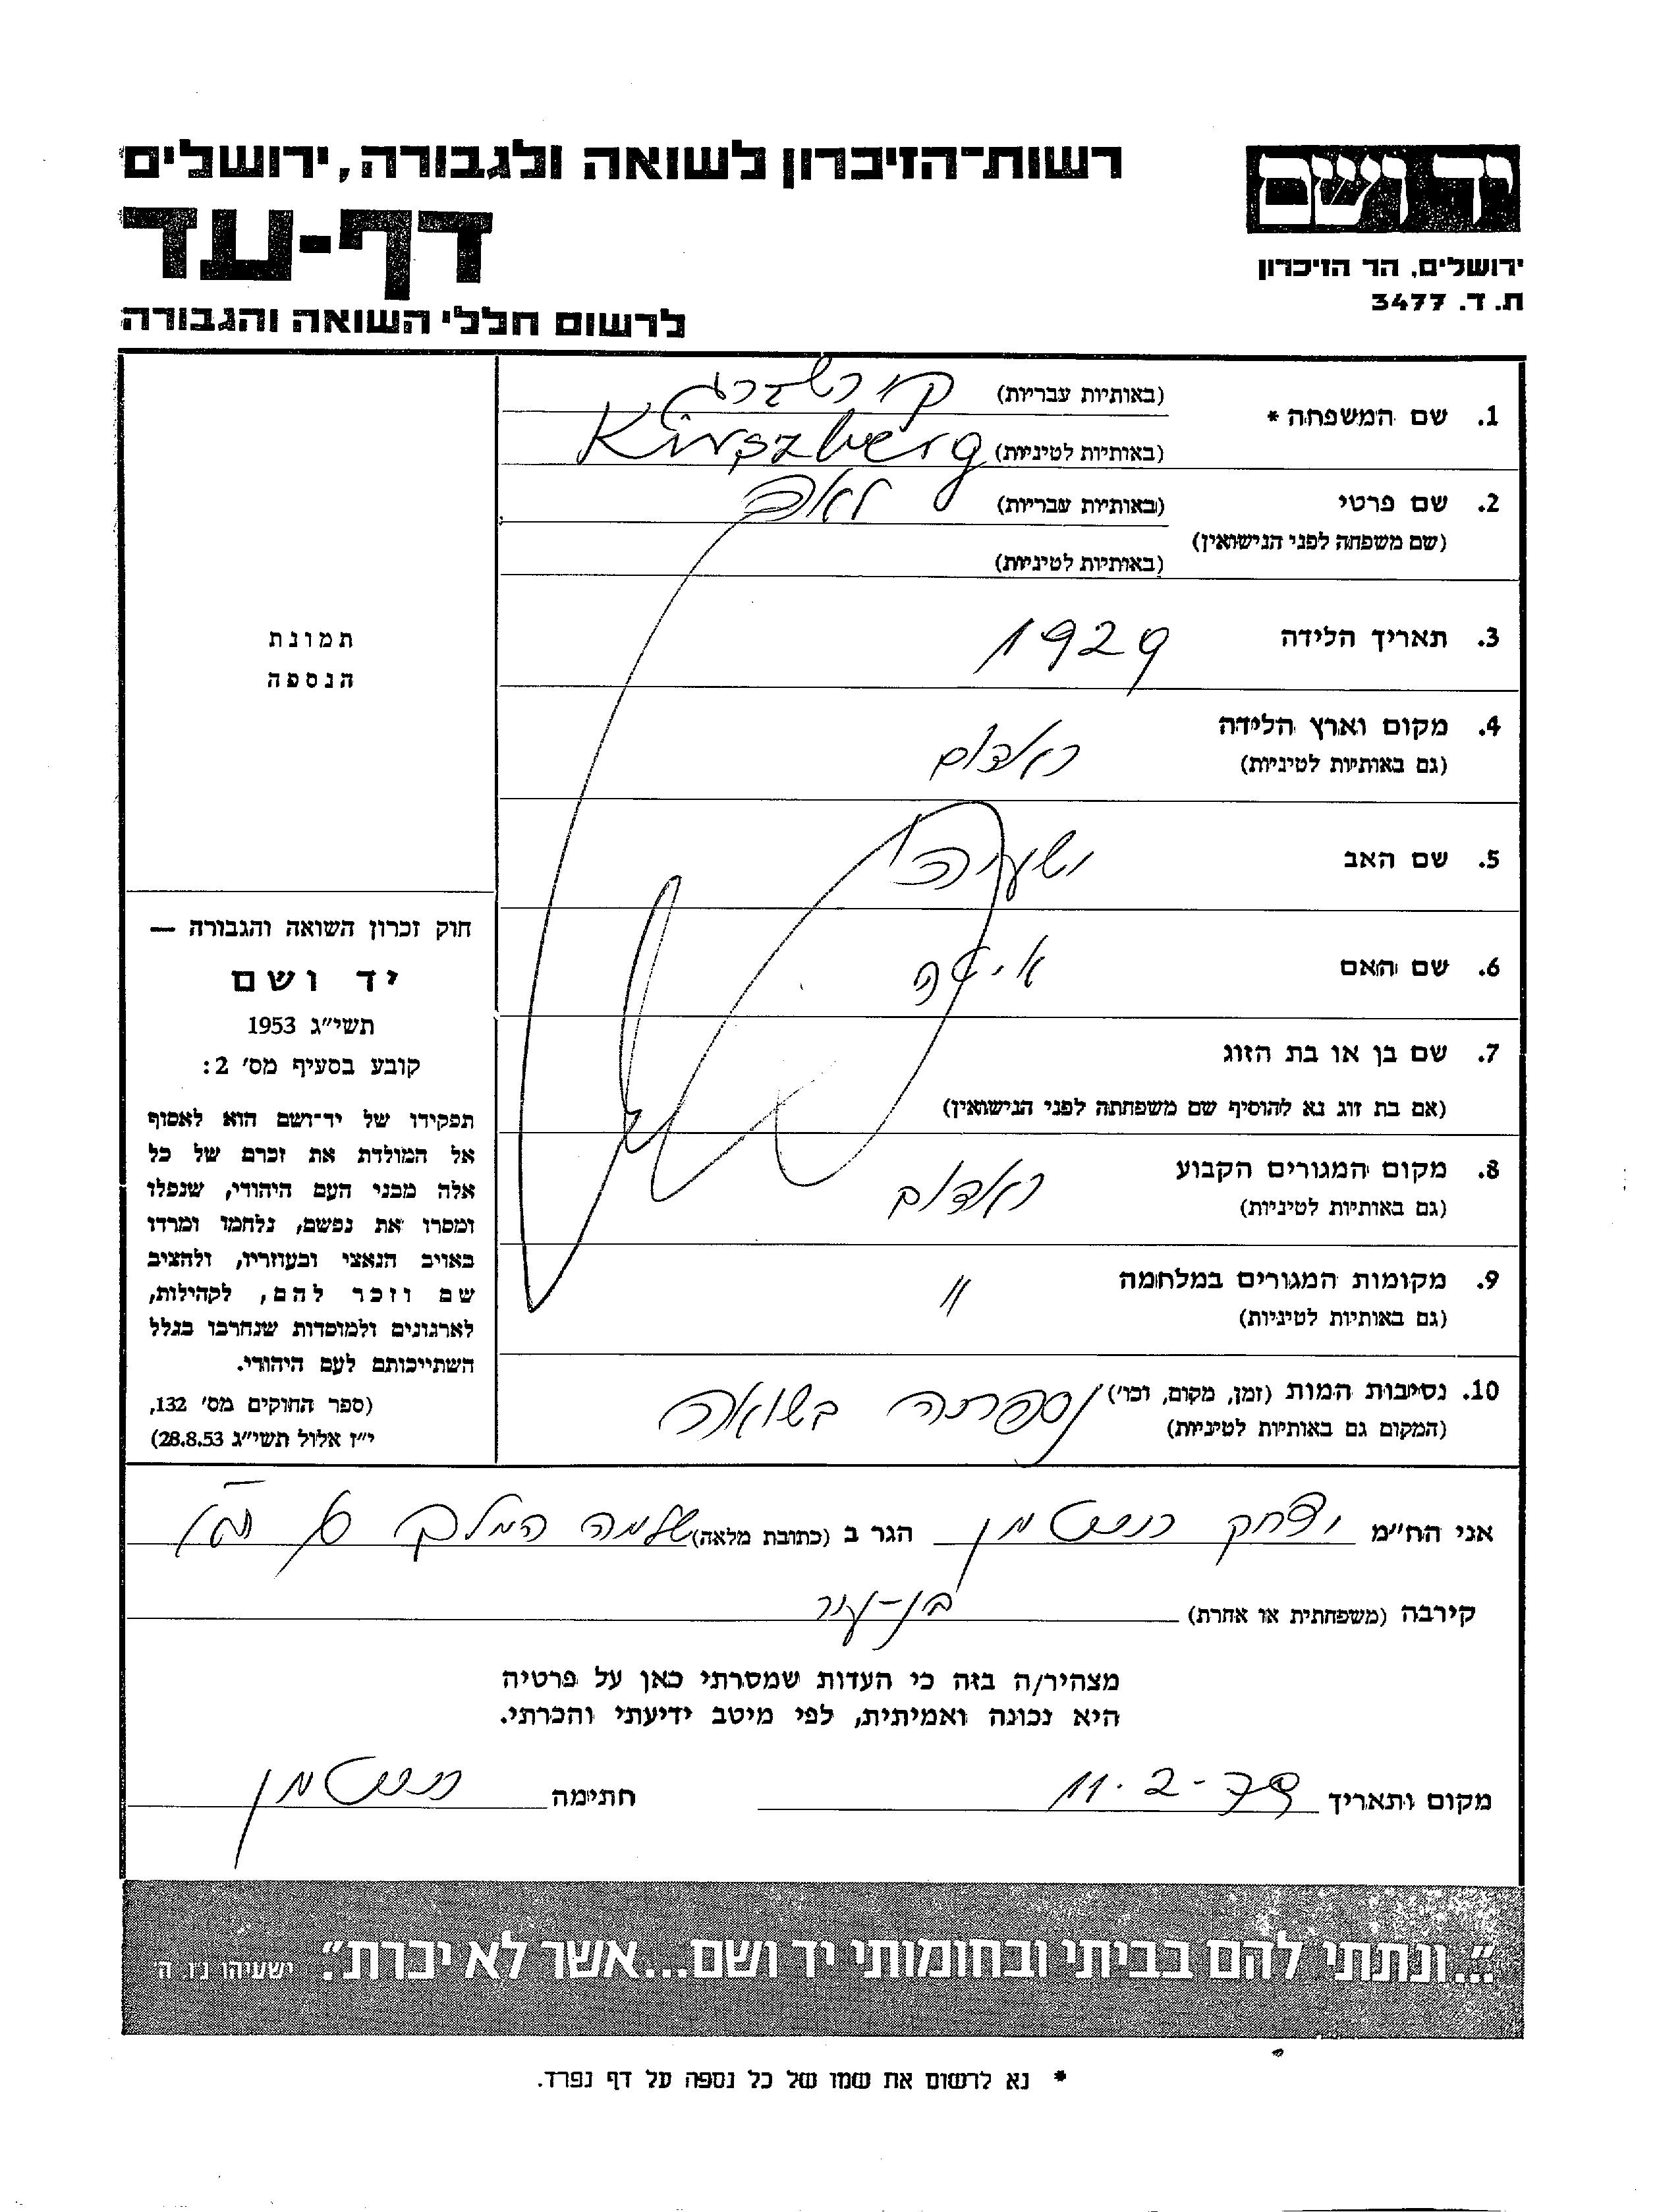 יד ושם
ירושלים, הר הזיכרון
ת. ד. 3477
רשות־הזיכרון לשואה ולגבורה, ירושלים
דף-עד
לרשום חללי השואה והגבורה
1. שם המשפחה *
(באותיות עבריות) קירשברג
(באותיות לטיניות) Kirszberg
2. שם פרטי
(שם משפחה לפני הנישואין)
(באותיות עבריות) לאה
(באותיות לטיניות)
3. תאריך הלידה 1929
4. מקום וארץ הלידה ראדום
(גם באותיות לטיניות)
5. שם האב ישעיהו
6. שם האם
7. שם בן או בת הזוג
(אם בת זוג נא להוסיף שם משפחתה לפני הנישואין)
8. מקום המגורים הקבוע ראדום
(גם באותיות לטיניות)
9. מקומות המגורים במלחמה "
(גם באותיות לטיניות)
10. נסיבות המות (זמן, מקום, וכו') נספתה בשואה
(המקום גם באותיות לטיניות)
תמונת
הנספה
חוק זכרון השואה והגבורה —
יד ושם
תשי"ג 1953
קובע בסעיף מס' 2:
תפקידו של יד־ושם הוא לאסוף
אל המולדת את זכרם של כל
אלה מבני העם היהודי, שנפלו
ומסרו את נפשם, נלחמו ומרדו
באויב הנאצי ובעוזריו, ולהציב
שם וזכר להם, לקהילות,
לארגונים ולמוסדות שנחרבו בגלל
השתייכותם לעם היהודי.
(ספר החוקים מס' 132,
י"ז אלול תשי"ג 28.8.53)
אני הח"מ יצחק הגר ב (כתובת מלאה) שלמה המלך
קירבה (משפחתית או אחרת) בן-עיר
מצהיר/ה בזה כי העדות שמסרתי כאן על פרטיה
היא נכונה ואמיתית, לפי מיטב ידיעתי והכרתי.
מקום ותאריך 11.2- חתימה
"...ונתתי להם בביתי ובחומותי יד ושם...אשר לא יכרת". ישעיהו נ"ו, ה'
* נא לרשום את שמו של כל נספה על דף נפרד.